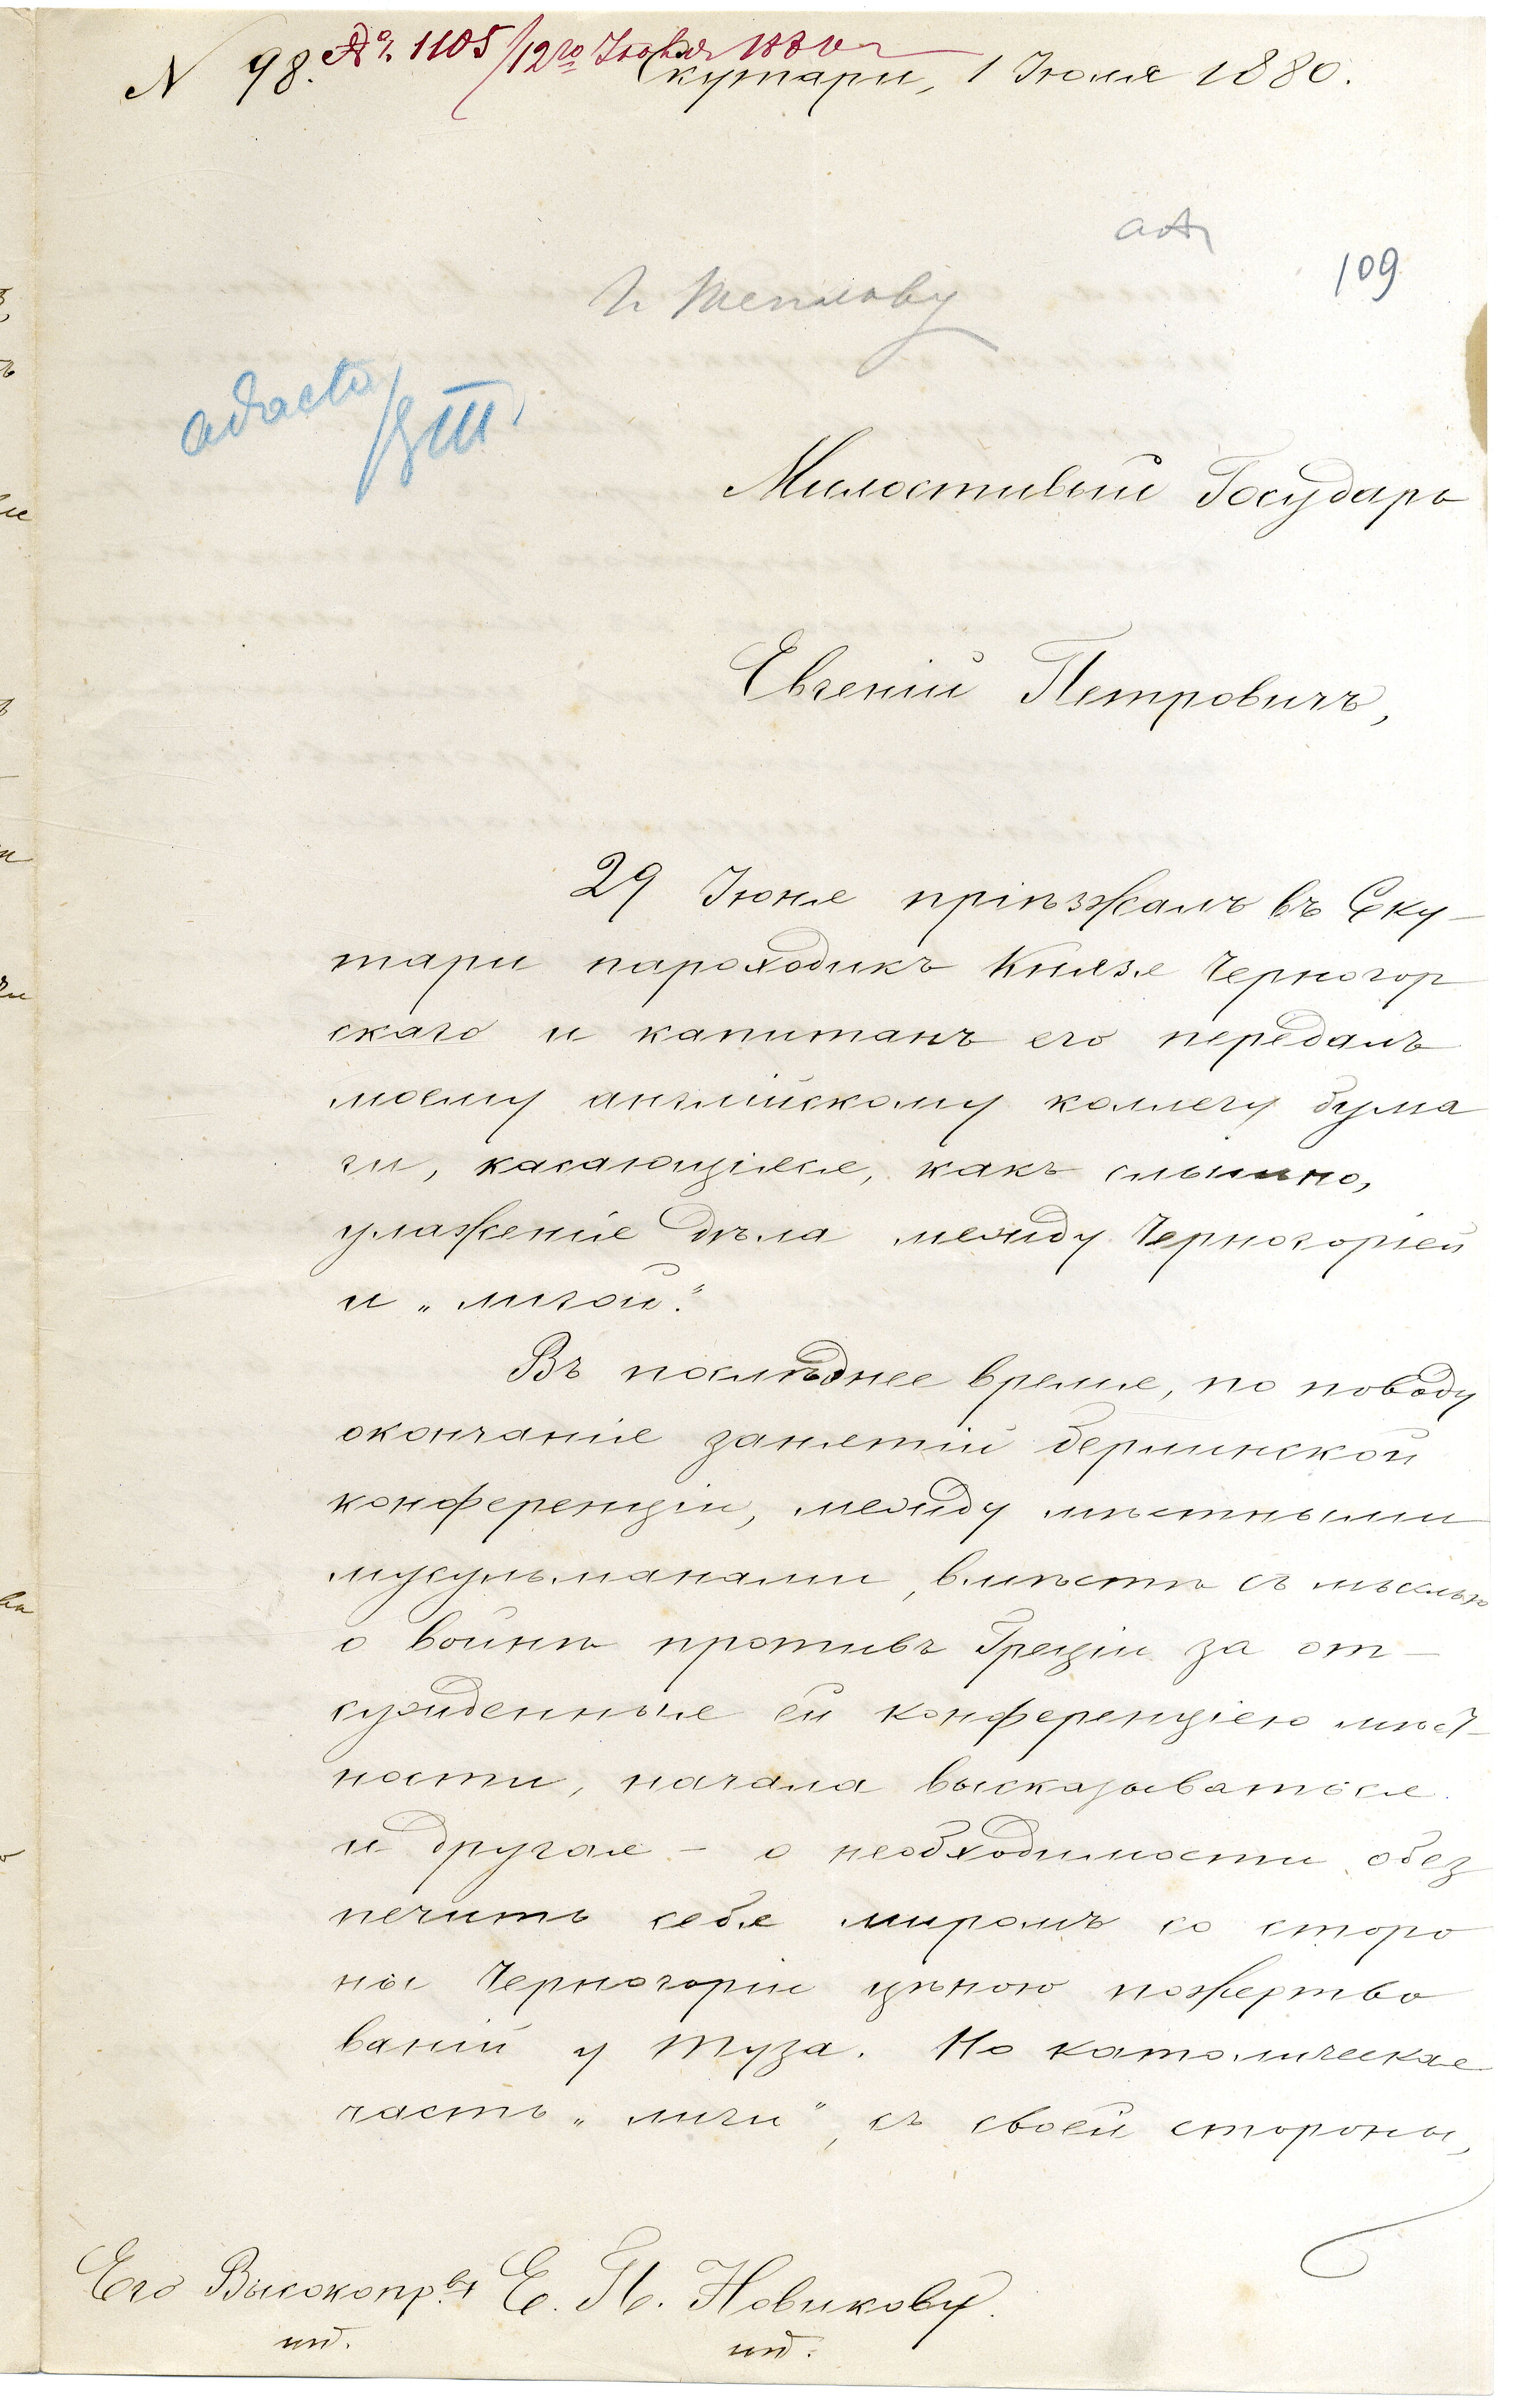 N 98. № 1105/12го Июля 1880 г
Скутари, 1 Июля 1880.
109
г. Теплову
ad acta
Милостивый Государь
Евгеній Петровичъ,
29 Іюня пріѣзжалъ въ Ску-
тари пароходикъ Князя Черногор
скаго и капитанъ его передалъ
моему англійскому коллегу бума
ги, касающіяся, какъ слышно,
улаженія дѣла между Черногоріей
и „лигой."
Въ послѣднее время, по поводу
окончанія занятій берлинской
конференціи, между мѣстными
мусульманами, вмѣстѣ съ мыслью
о войнѣ противъ Греціи за от-
сужденныя ей конференціею мѣст-
ности, начала высказываться
и другая – о необходимости обез
печить себя миромъ со сторо
ны Черногоріи цѣною пожертво
ваній у Туза. Но католическая
часть „лиги", съ своей стороны,
Его Высокопр.ву Е. П. Новикову.
ип. ип.